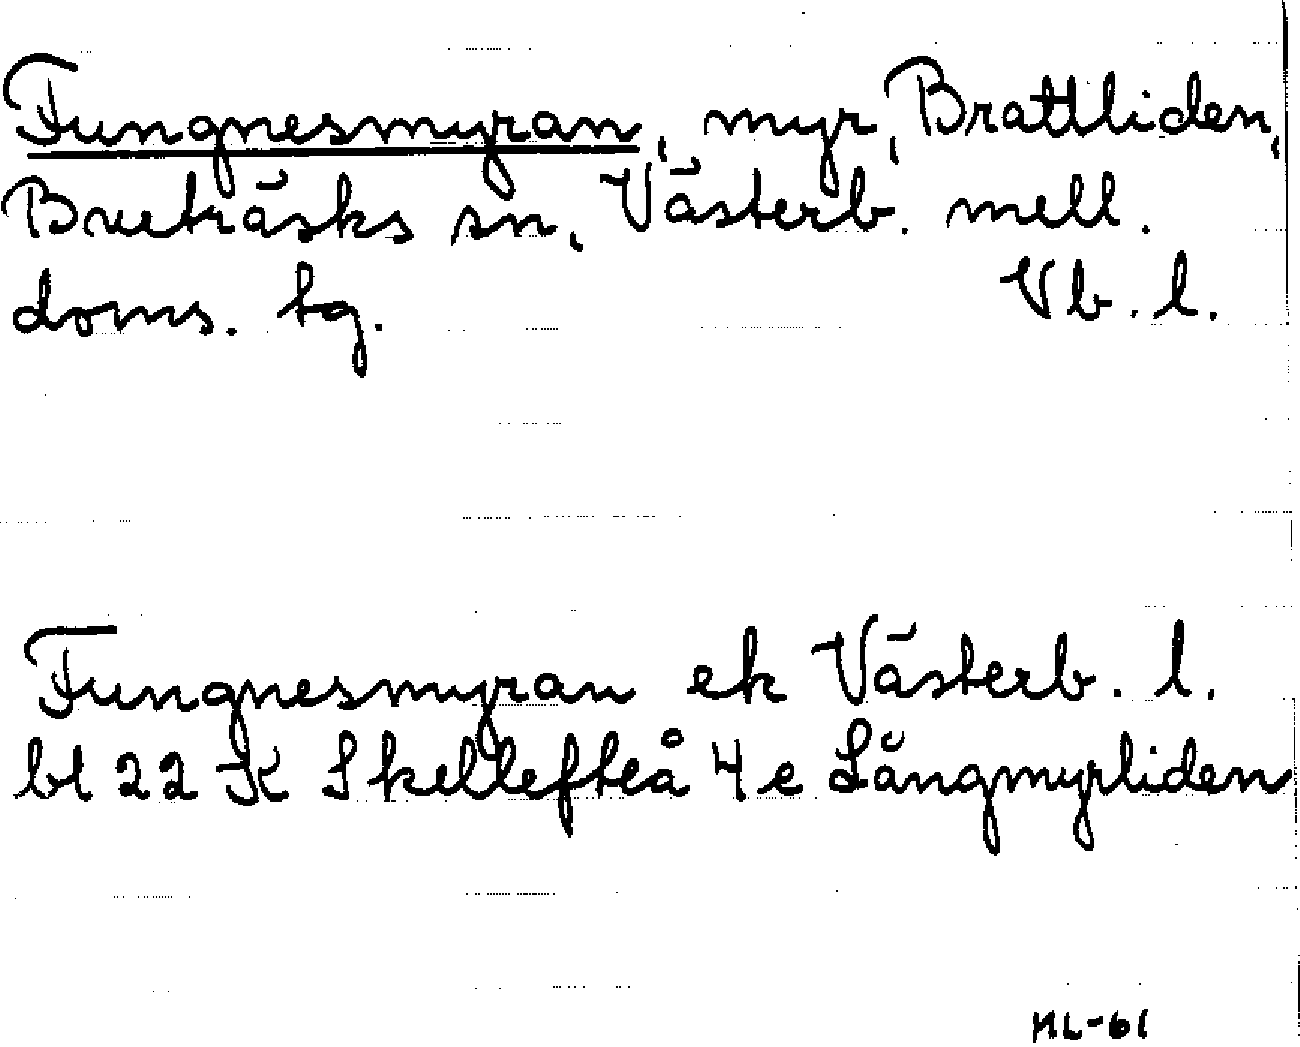 Fungnesmyran, myr, Brattliden,
Bureträsks sn, Västerb. mell.
doms. tg. Vb. l.
Fungnesmyran ek Västerb. l.
bl 22 K Skellefteå 4 e Långmyrliden
ML-61